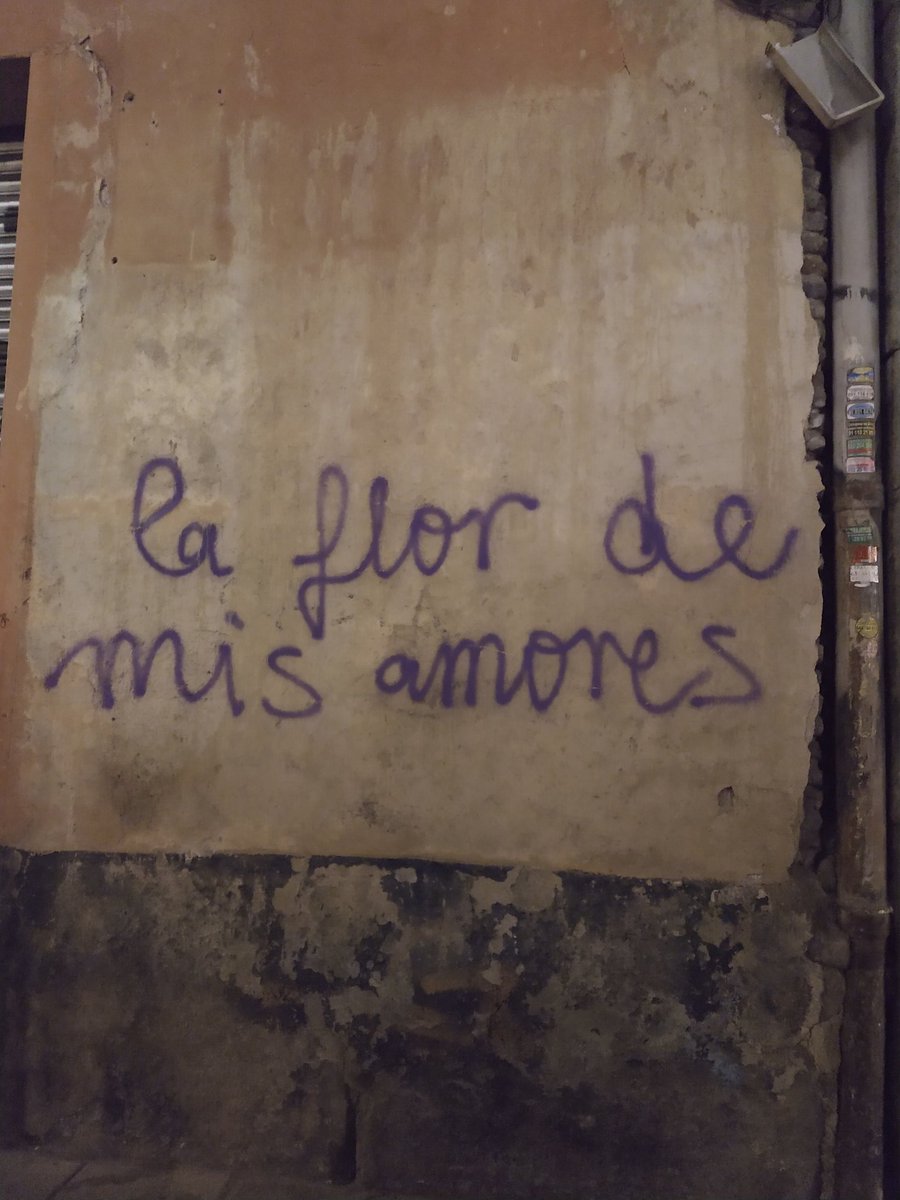 la flor de
mis amores